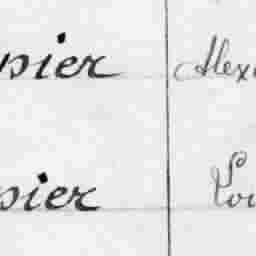 pier Alex
pier Lou